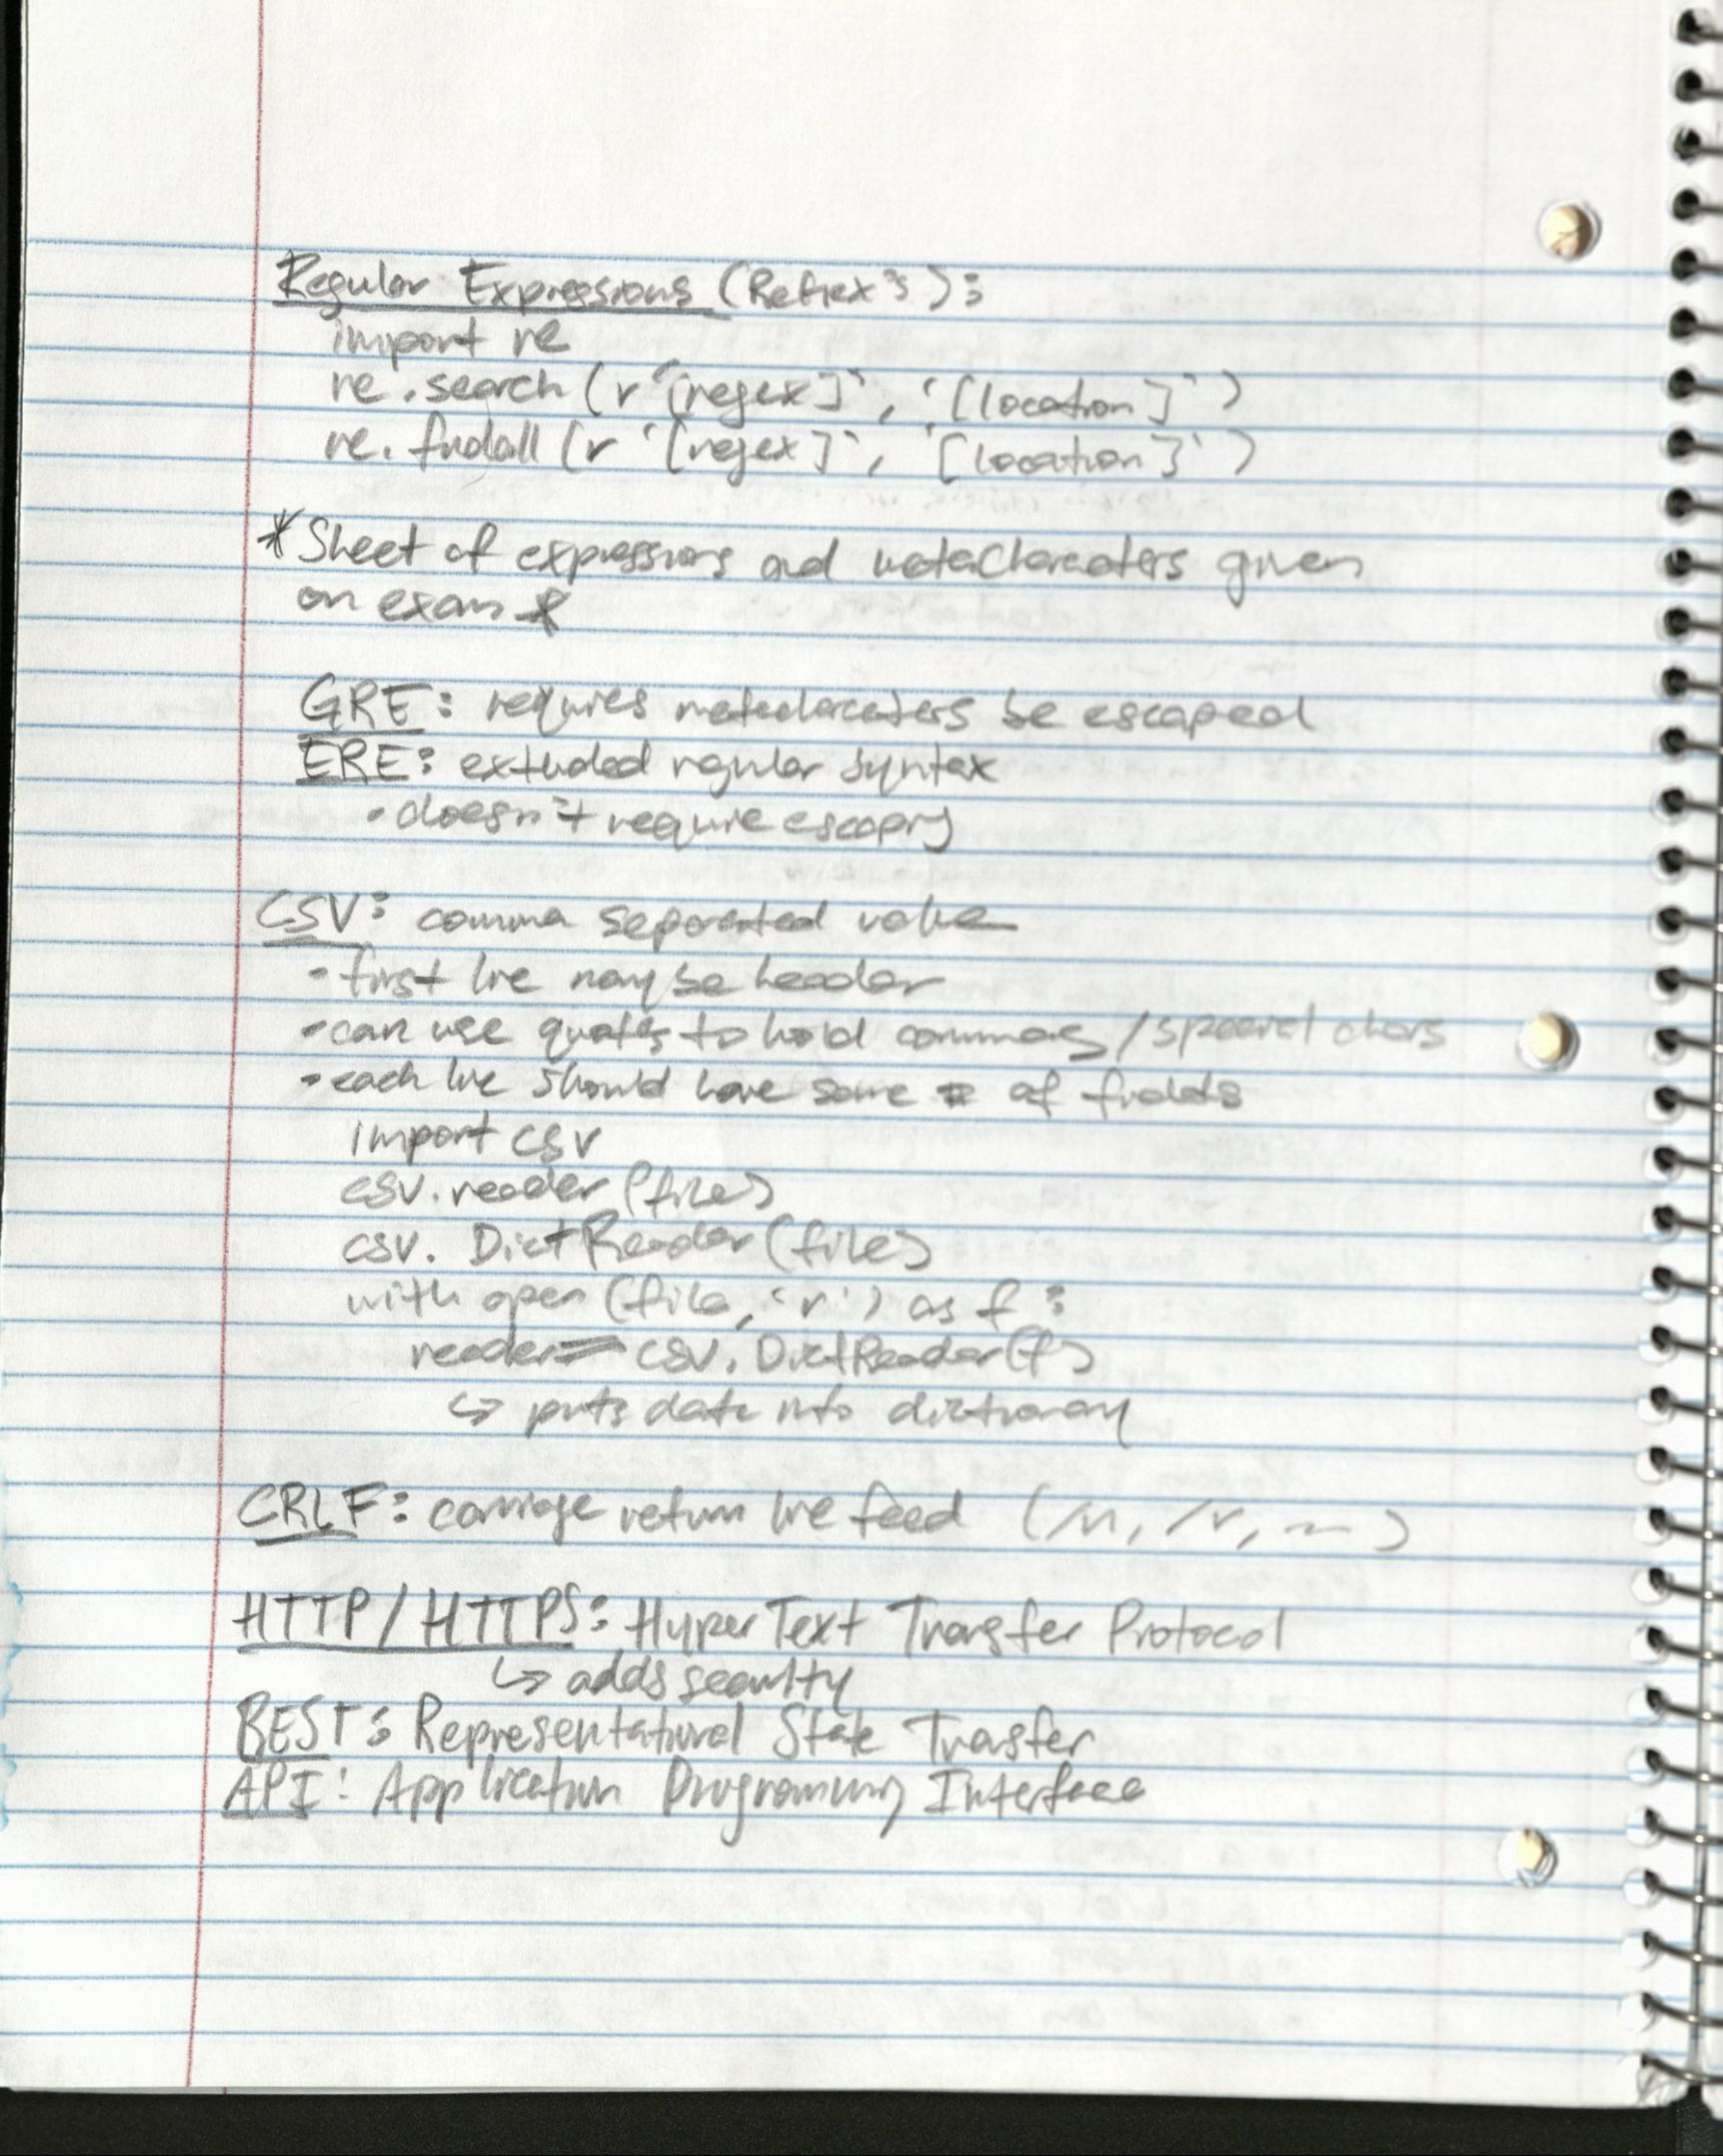 Regular Expressions (Refiex's):
import re
re.search(r'[regex]', '[location]')
re.findall(r'[regex]', '[location]')
*Sheet of expressions and metacharacters given
on exam*
GRE: requires metacharacters be escaped
ERE: extended regular syntax
• doesn't require escaping
CSV: comma separated value
• first line may be header
• can use quotes to hold commas/special chars
• each line should have same # of fields
import csv
csv.reader(file)
csv.DictReader(file)
with open(file, 'r') as f:
reader = csv.DictReader(f)
↳ puts data into dictionary
CRLF: carriage return line feed (/n, /r, ~)
HTTP/HTTPS: HyperText Transfer Protocol
↳ adds security
BEST: Representational State Transfer
API: Application Programming Interface